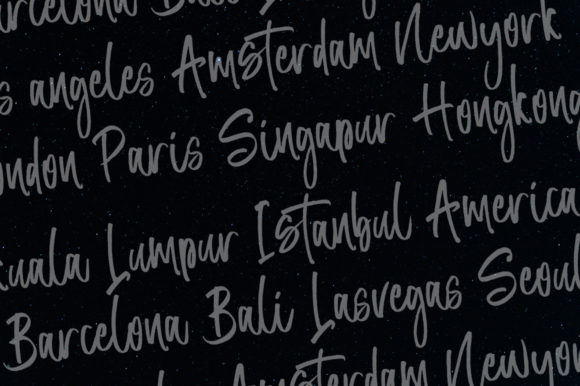 Barcelona Bali
Los angeles Amsterdam Newyork
London Paris Singapur Hongkong
Kuala Lumpur Istanbul America
Barcelona Bali Lasvegas Seoul
Amsterdam Newyork